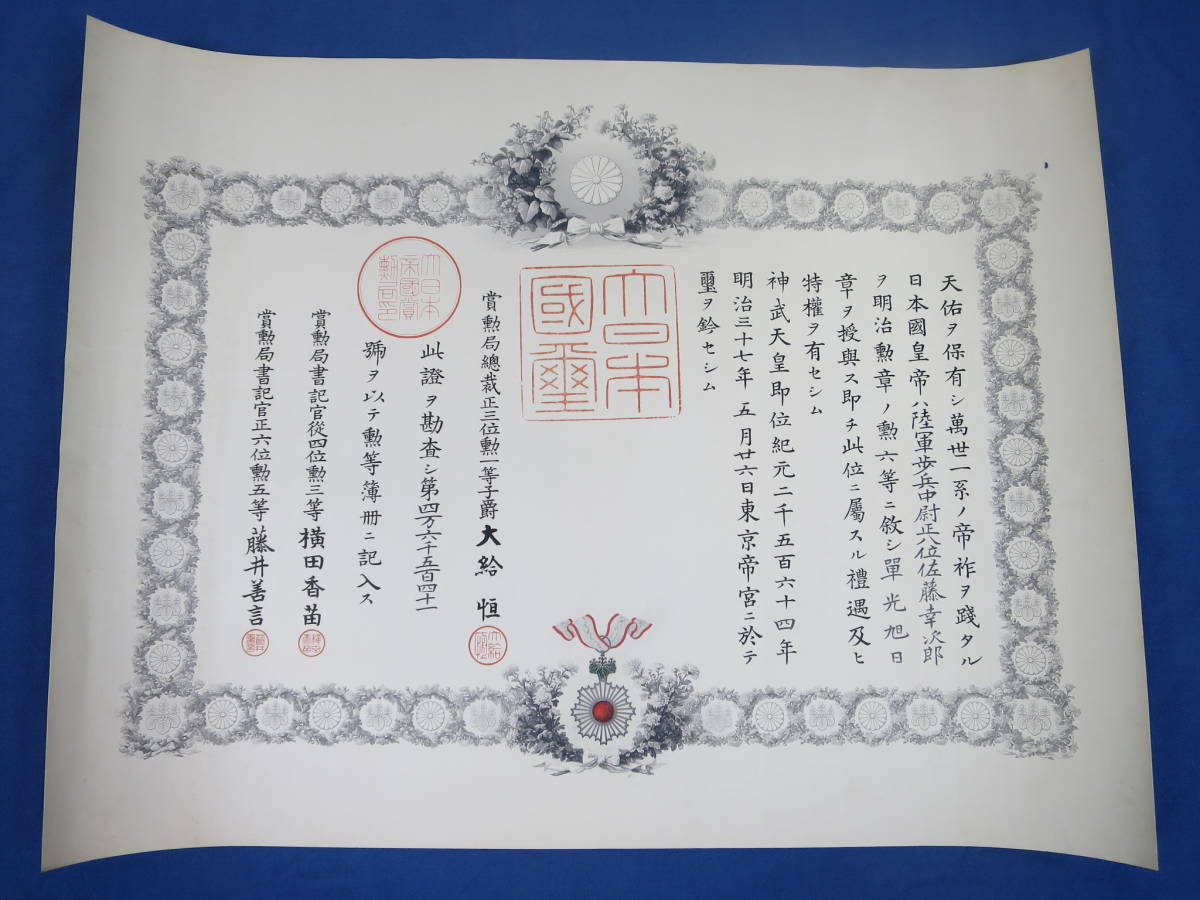 天佑ヲ保有シ萬世一系ノ帝祚ヲ踐タル
日本國皇帝ハ陸軍歩兵中尉正八位佐藤幸次郎
ヲ明治勲章ノ勲六等ニ敘シ單光旭日
章ヲ授與ス即チ此位ニ屬スル禮遇及ヒ
特權ヲ有セシム
神武天皇即位紀元二千五百六十四年
明治三十七年五月廿六日東京帝宮ニ於テ
璽ヲ鈐セシム
大日本
國璽
賞勲局總裁正三位勲一等子爵大給恒
大日本
帝國賞
勲局印
此證ヲ勘査シ第四万六千五百四十一
號ヲ以テ勲等簿冊ニ記入ス
賞勲局書記官從四位勲三等横田香苗
賞勲局書記官正六位勲五等藤井善言